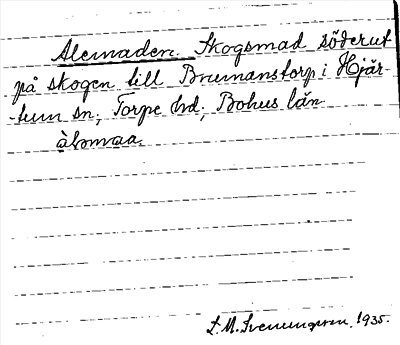 Alemaden. Skogsmad söderut
på skogen till Brumanstorp i Hjär-
-tum sn, Torpe hd, Bohus län
àlomaa.
S. M. Svenungsson, 1935.